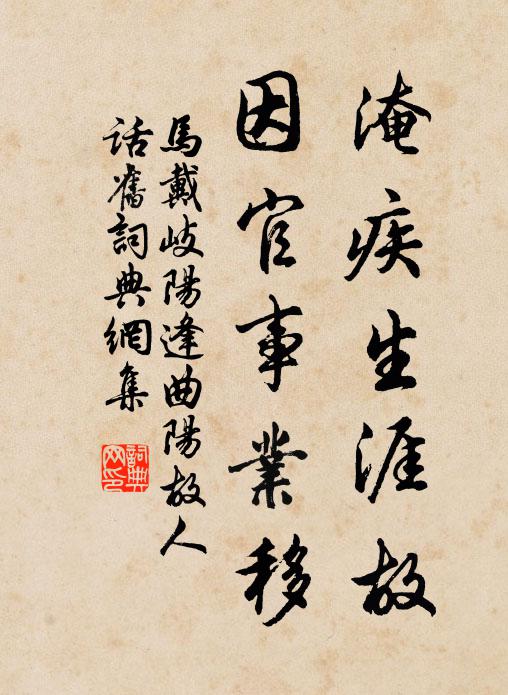 淹疾生涯故
因官事業移
馬戴岐陽逢曲陽故人
話舊詞典網集
詞典网印